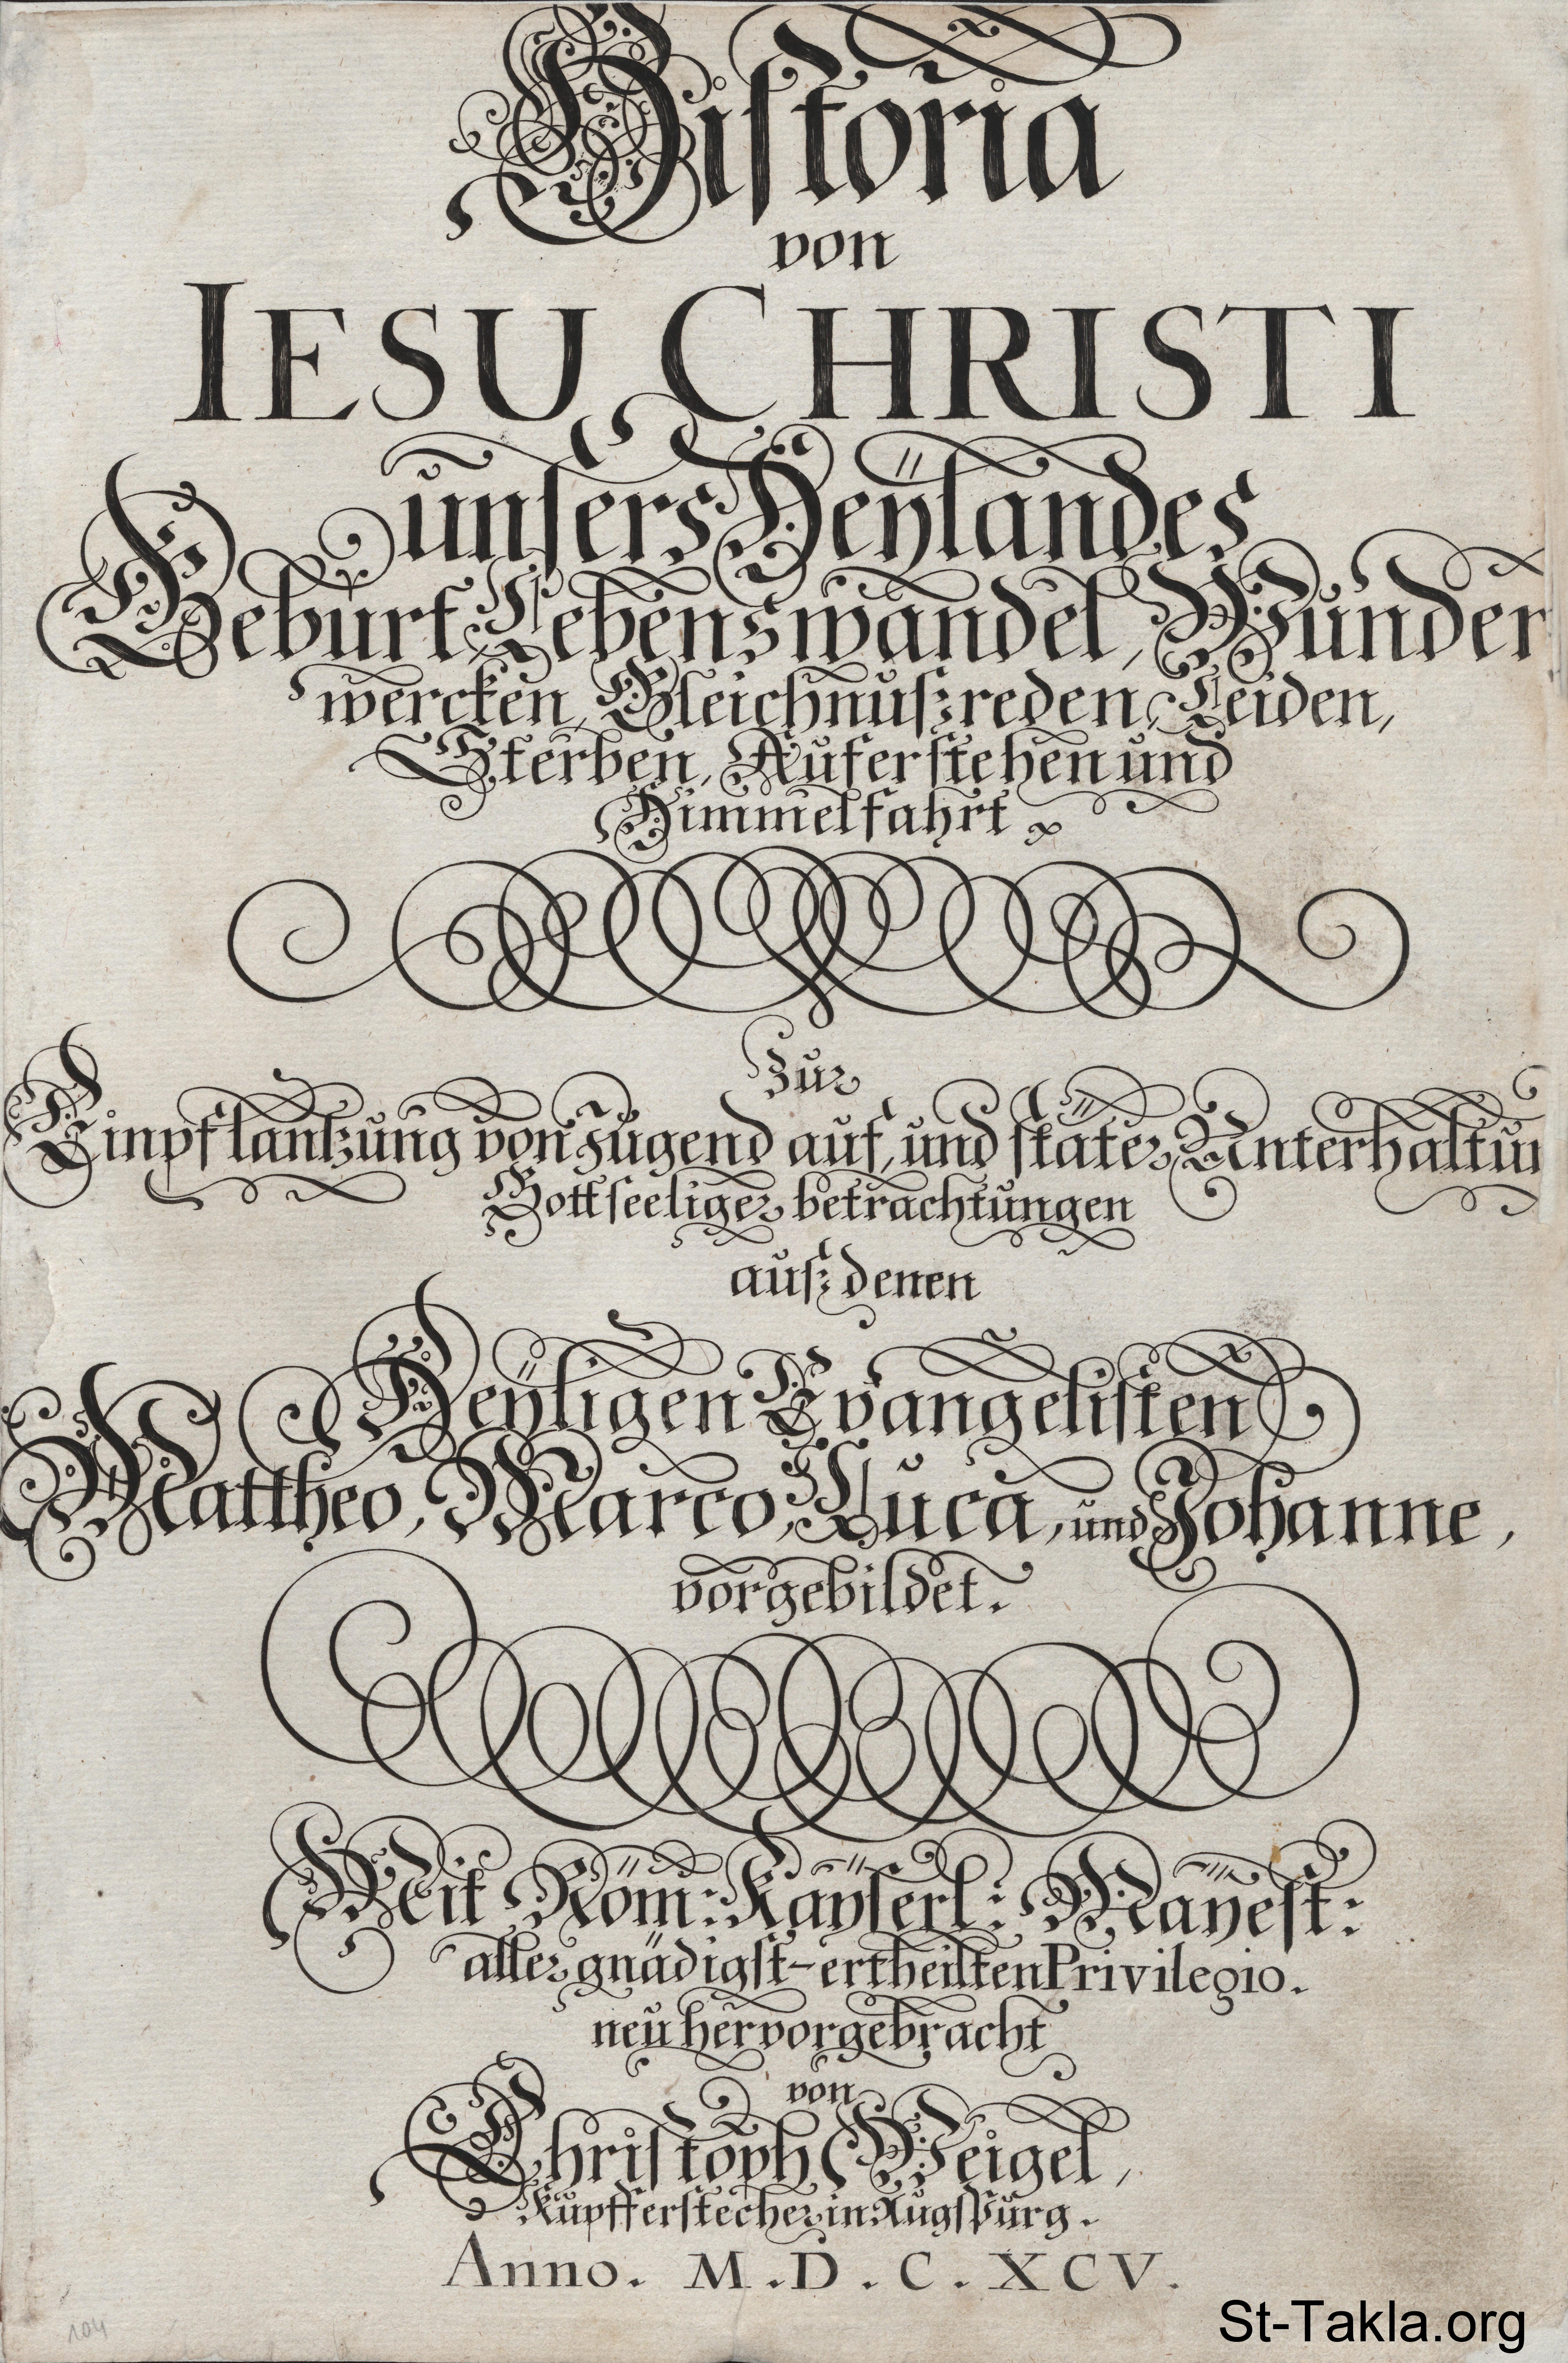 Historia
von
IESU CHRISTI
unsers Heÿlandes
Geburt, Lebenswandel, Wunder
wercken, Gleichnußreden, Leiden,
Sterben, Auferstehen und
Himmelfahrt
Zur
Einpflantzung von Jugend auf, und stäter Unterhaltun
Gottseeliger betrachtungen
auß denen
Heÿligen Evangelisten
Mattheo, Marco, Luca, und Johanne,
vorgebildet.
Mit Röm: Kaÿserl: Maÿest:
aller gnädigst-ertheilten Privilegio.
neu hervorgebracht
von
Christoph Weigel,
Kupfferstecher in Augspurg.
Anno. M.D.C.XCV.
104
St-Takla.org